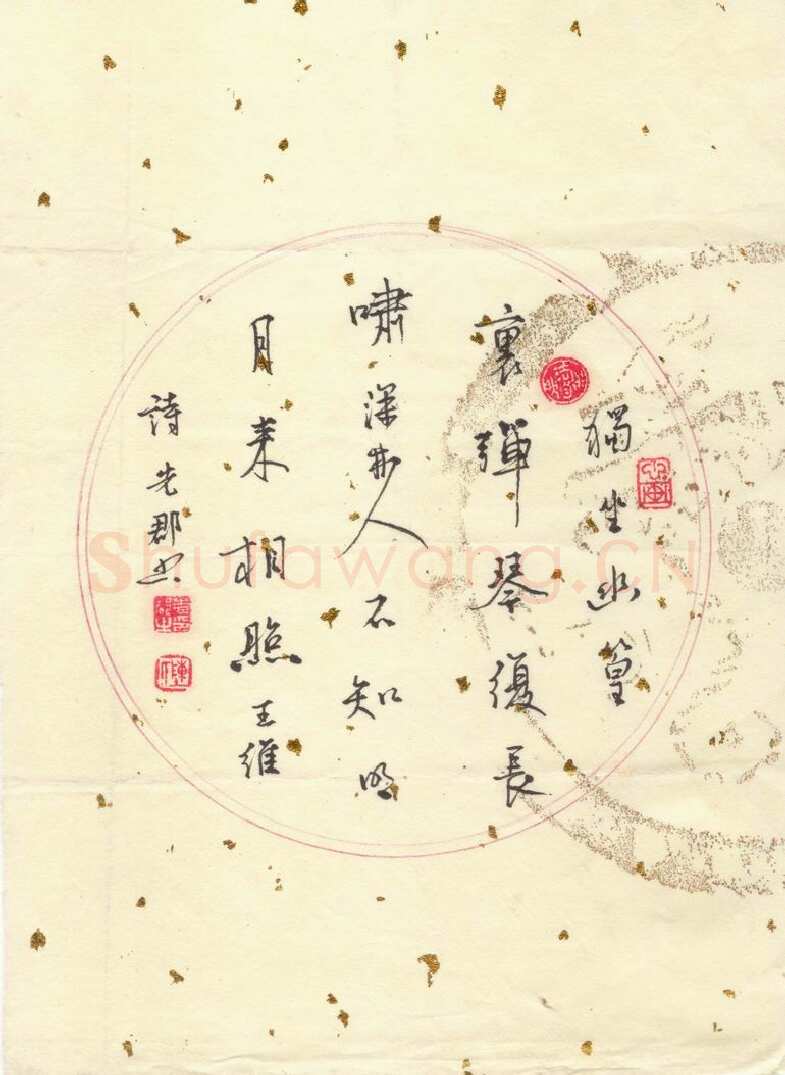 獨坐幽篁
裏彈琴復長
嘯深林人不知明
月来相照王維
詩先郡书
Shufawang.CN